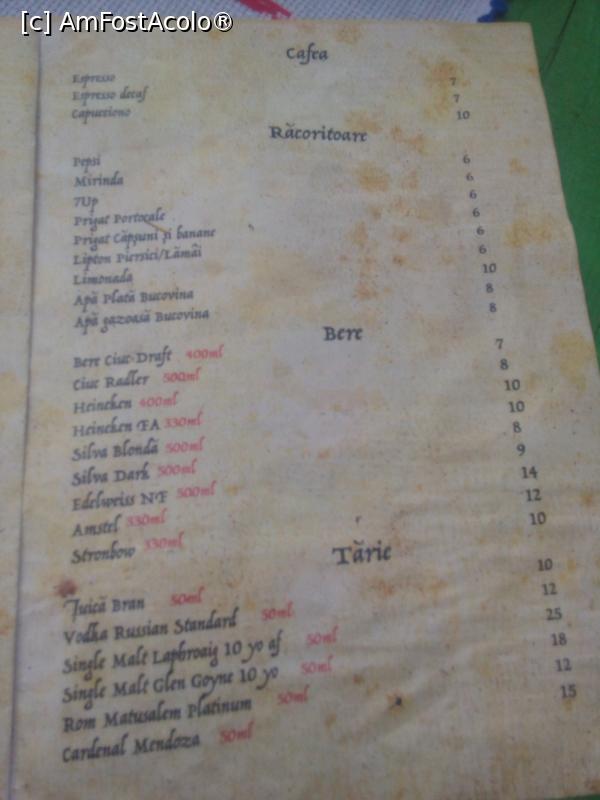 [c] AmFostAcolo®
Cafea
Espresso 7
Espresso decaf 7
Capucciono 10
Răcoritoare
Pepsi 6
Mirinda 6
7Up 6
Prigat Portocale 6
Prigat Căpșuni și banane 6
Lipton Piersici/Lămâi 6
Limonada 10
Apă Plată Bucovina 8
Apă gazoasă Bucovina 8
Bere
Bere Ciuc Draft 400ml 7
Ciuc Radler 500ml 8
Heineken 400ml 10
Heineken FA 330ml 10
Silva Blondă 500ml 8
Silva Dark 500ml 9
Edelweiss NF 500ml 14
Amstel 330ml 12
Stronbow 330ml 10
Tărie
Țuică Bran 50ml 10
Vodka Russian Standard 50ml 12
Single Malt Laphroaig 10 yo af 50ml 25
Single Malt Glen Goyne 10 yo 50ml 18
Rom Matusalem Platinum 50ml 12
Cardenal Mendoza 50ml 15